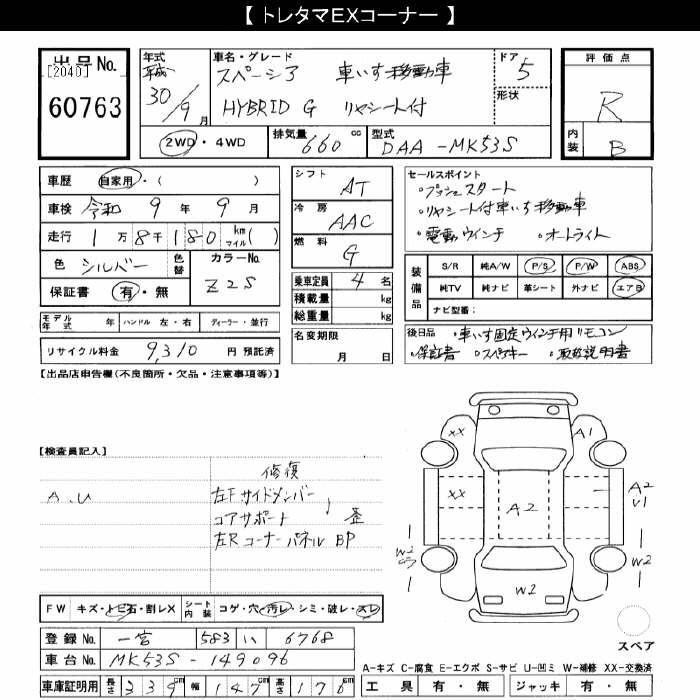 【 トレタマEXコーナー 】
出品No.
[2040]
60763
年式
平成
30/9月
車名・グレード
スペーシア 車いす移動車
HYBRID G リヤシート付
ドア 5
形状
評価点
R
内装 B
2WD・4WD
排気量 660 cc
型式 DAA-MK53S
車歴 自家用・( )
車検 令和 9 年 9 月
走行 1万8千180 km マイル( )
色 シルバー 色替 カラーNo. Z2S
保証書 有・無
モデル年式 年 ハンドル 左・右 ディーラー・並行
リサイクル料金 9,310 円 預託済
シフト AT
冷房 AAC
燃料 G
乗車定員 4 名
積載量 kg
総重量 kg
名変期限
月 日
セールスポイント
・プッシュスタート
・リヤシート付車いす移動車
・電動ウインチ ・オートライト
装備品
S/R 純A/W P/S P/W ABS
純TV 純ナビ 革シート 外ナビ エアB
ナビ型番:
後日品 ・車いす固定ウインチ用リモコン
・保証書 ・スペアキー ・取扱説明書
【出品店申告欄(不良箇所・欠品・注意事項等)】
【検査員記入】
A.U
修復
左Fサイドメンバー
コアサポート 歪
左Rコーナーパネル BP
XX
A1
XX
A2
A2
U1
W2
W2
W2
スペア
FW キズ・トビ石・割レX シート内装 コゲ・穴・汚レ・シミ・破レ・スレ
登録No. 一宮 583 い 6768
車台No. MK53S-149096
車庫証明用 長さ 339cm 幅 147cm 高さ 178cm
A-キズ C-腐食 E-エクボ S-サビ U-凹ミ W-補修 XX-交換済
工具 有・無 ジャッキ 有・無